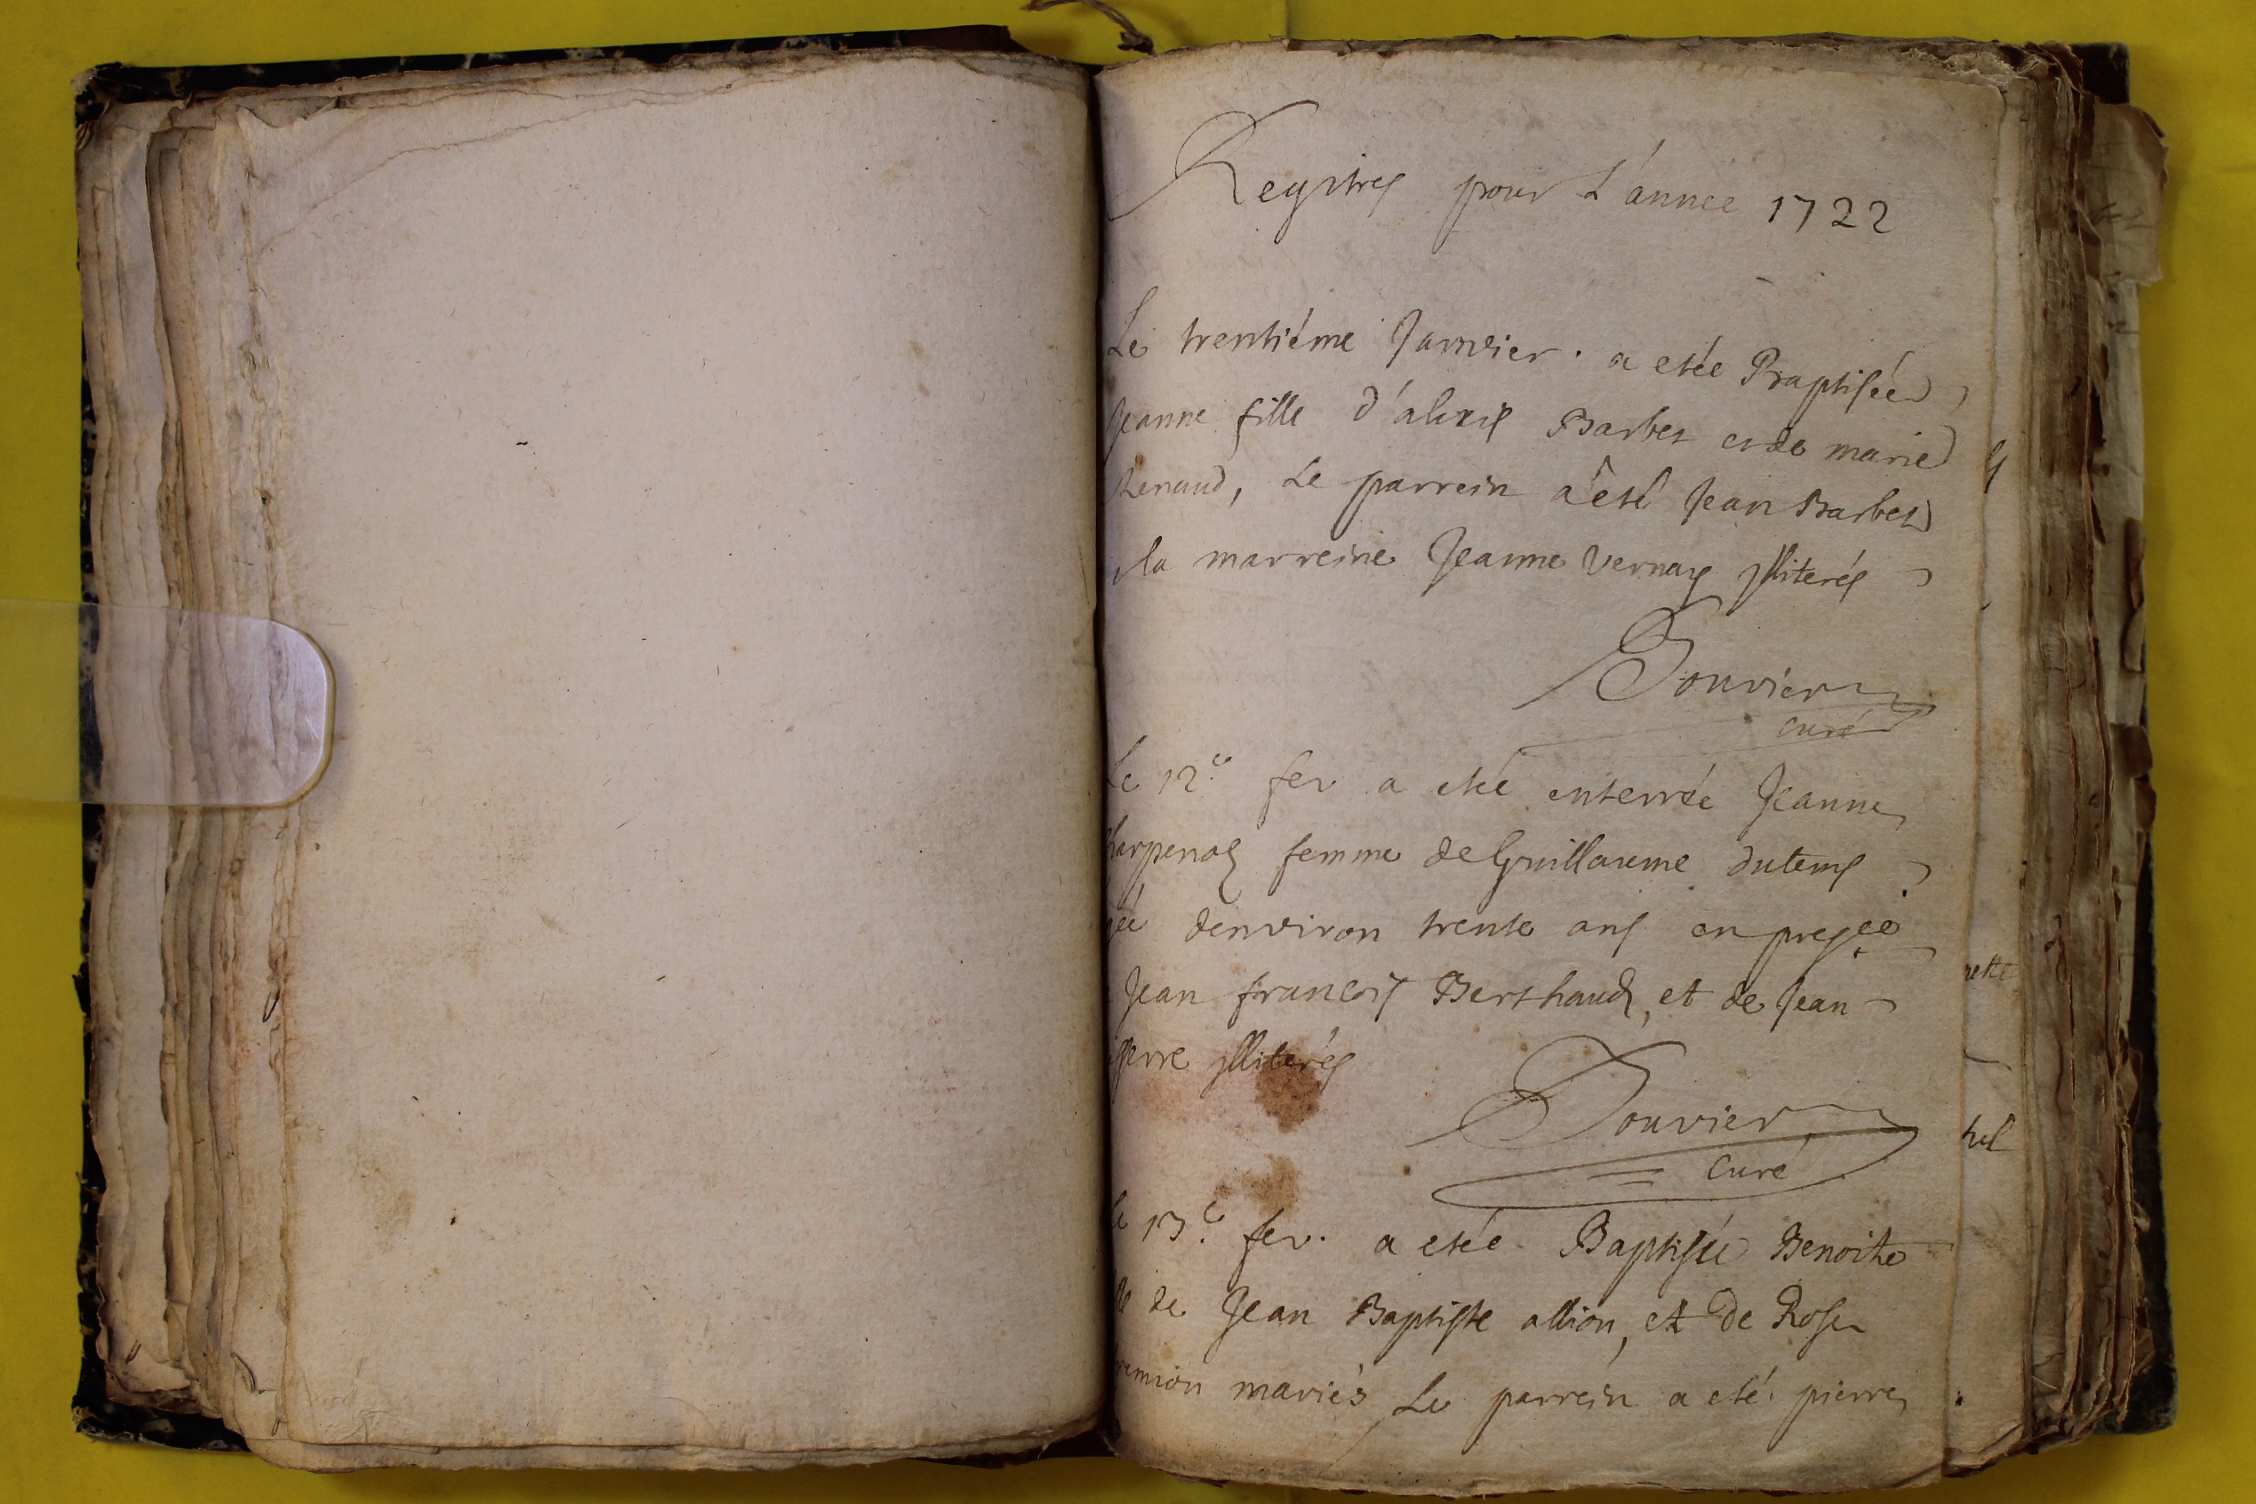 Regitres pour L'année 1722
Le trentiéme Janvier. a etée Baptisée
Jeanne fille d'alexis Barbet et de marie
Renaud, Le parrein a été Jean Barbet
la marreine Jeanne Vernay jlliterés
Bouvier
curé
Le 12.e fev a etée enterrée Jeanne
femme de Guillaume dutems
gée denviron trente ans en presce
Jean francois Berthaud, et de Jean
pierre jlliterés
Bouvier
Curé
Le 13.e fev. a etée Baptisée Benoite
lle de Jean Baptiste allion, et de Rose
mariés Le parrein a eté pierre